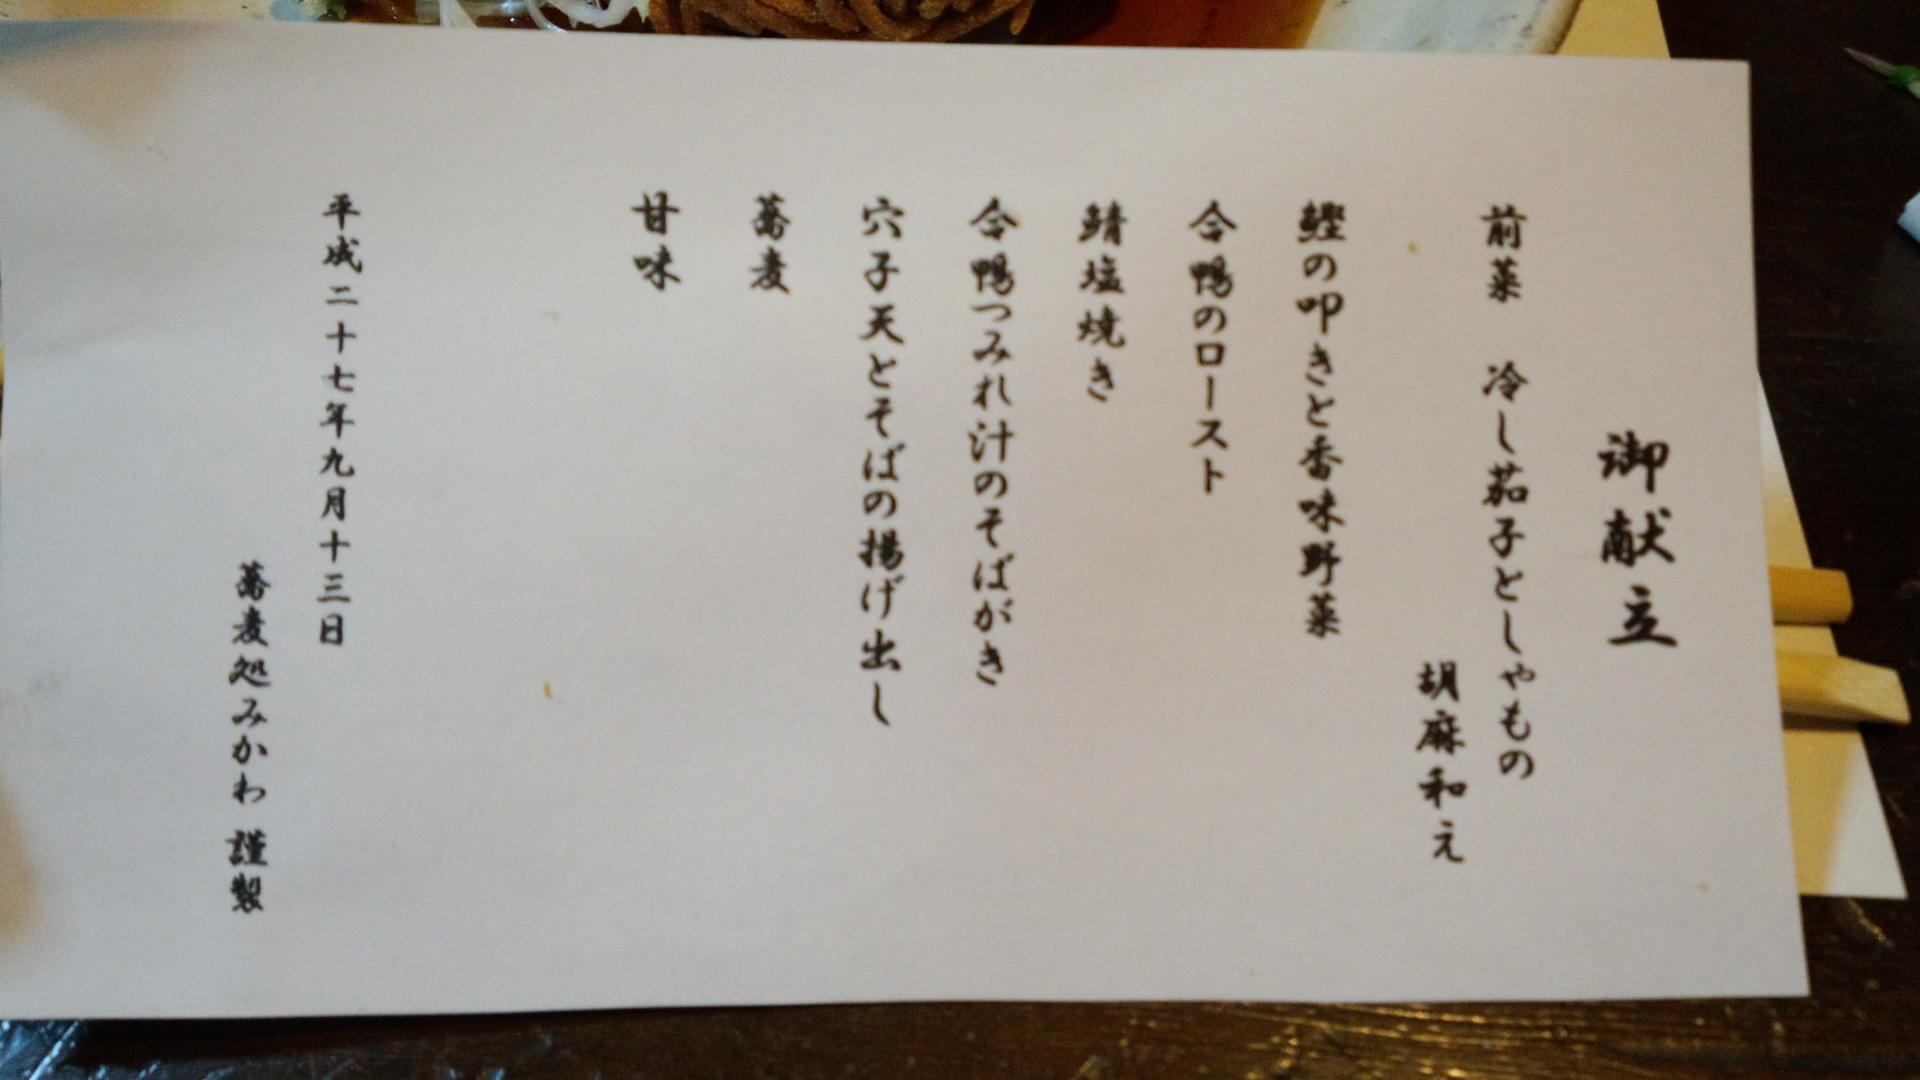 御献立
前菜　冷し茄子としやもの
胡麻和え
鰹の叩きと香味野菜
合鴨のロースト
鯖塩焼き
合鴨つみれ汁のそばがき
穴子天とそばの揚げ出し
蕎麦
甘味
平成二十七年九月十三日
蕎麦処みかわ 謹製